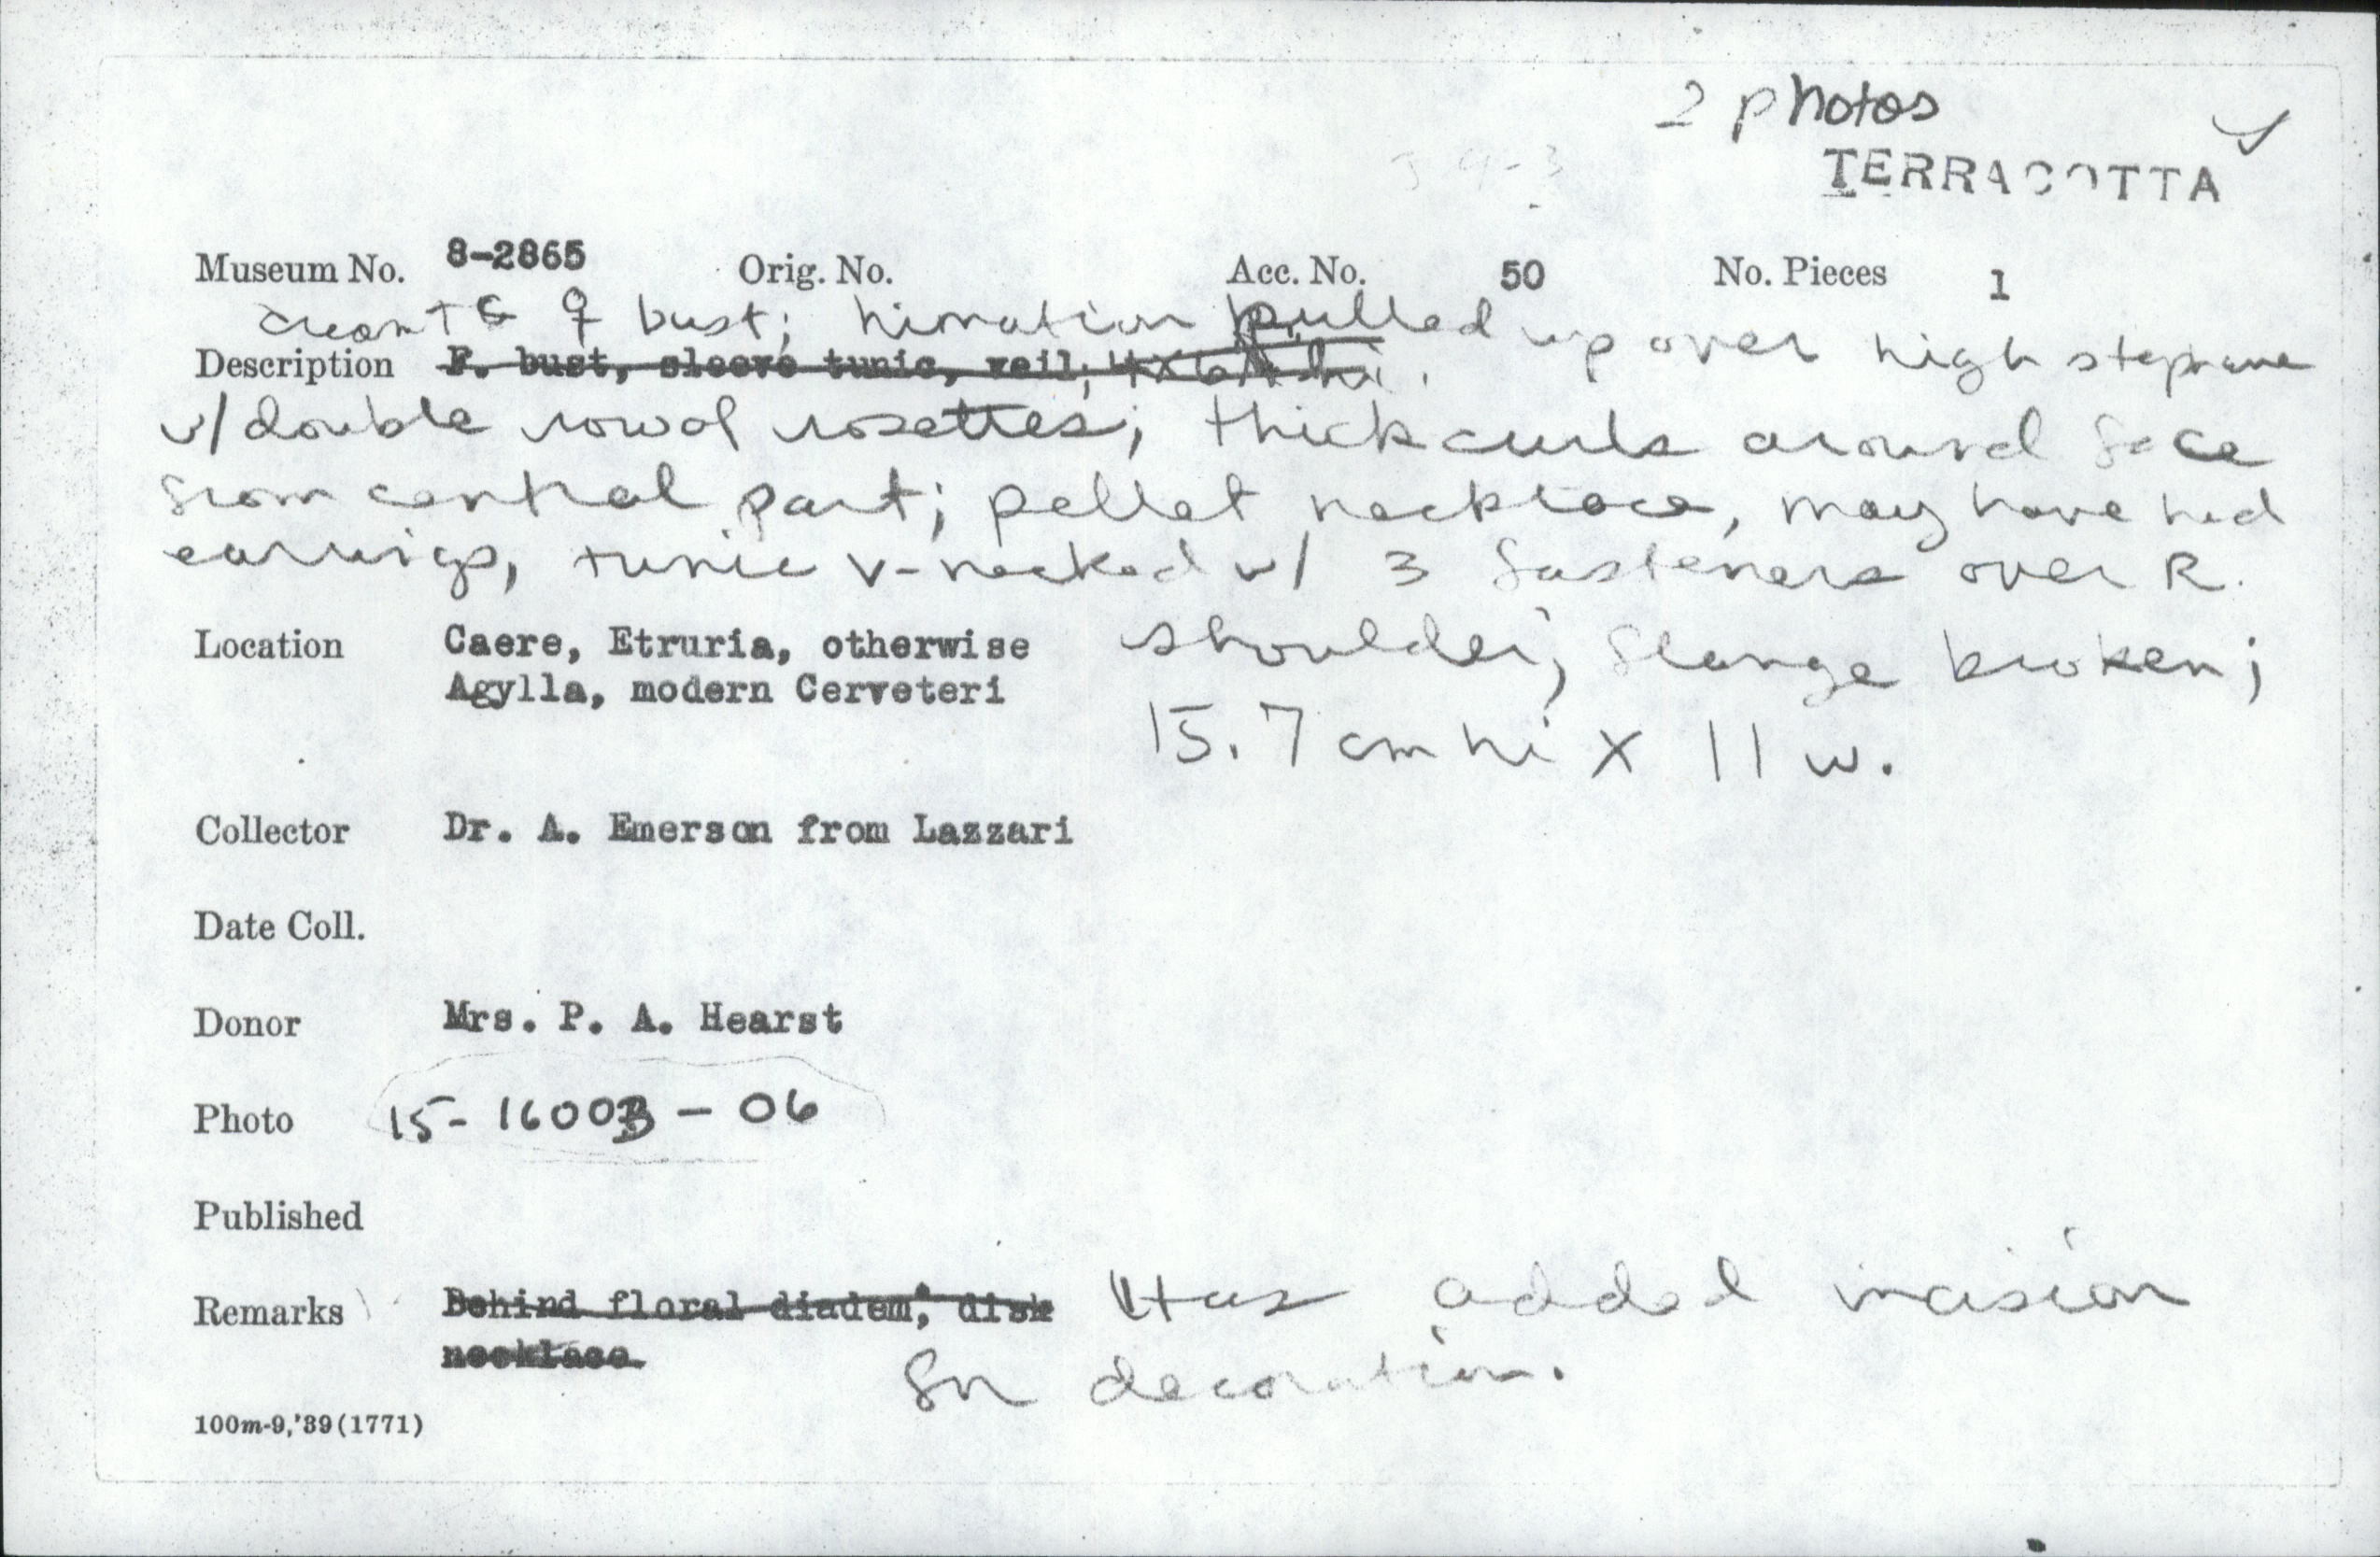 2 photos
TERRACOTTA
Museum No. 8-2865 Orig. No. Acc. No. 50 No. Pieces 1
cream TC ♀ bust; himation pulled up over high stephane
Description F. bust, sleeve tunic, veil,
w/ double row of rosettes; thick curls around face
from central part; pellet necklace, may have had
earrings, tunic v-necked w/ 3 fasteners over R.
Location Caere, Etruria, otherwise shoulder; flange broken;
Agylla, modern Cerveteri
15.7 cm hi x 11 w.
Collector Dr. A. Emerson from Lazzari
Date Coll.
Donor Mrs. P. A. Hearst
Photo 15-16003-06
Published
Remarks Behind floral diadem, disk Has added incision
necklace.
for decoration.
100m-9,'39(1771)